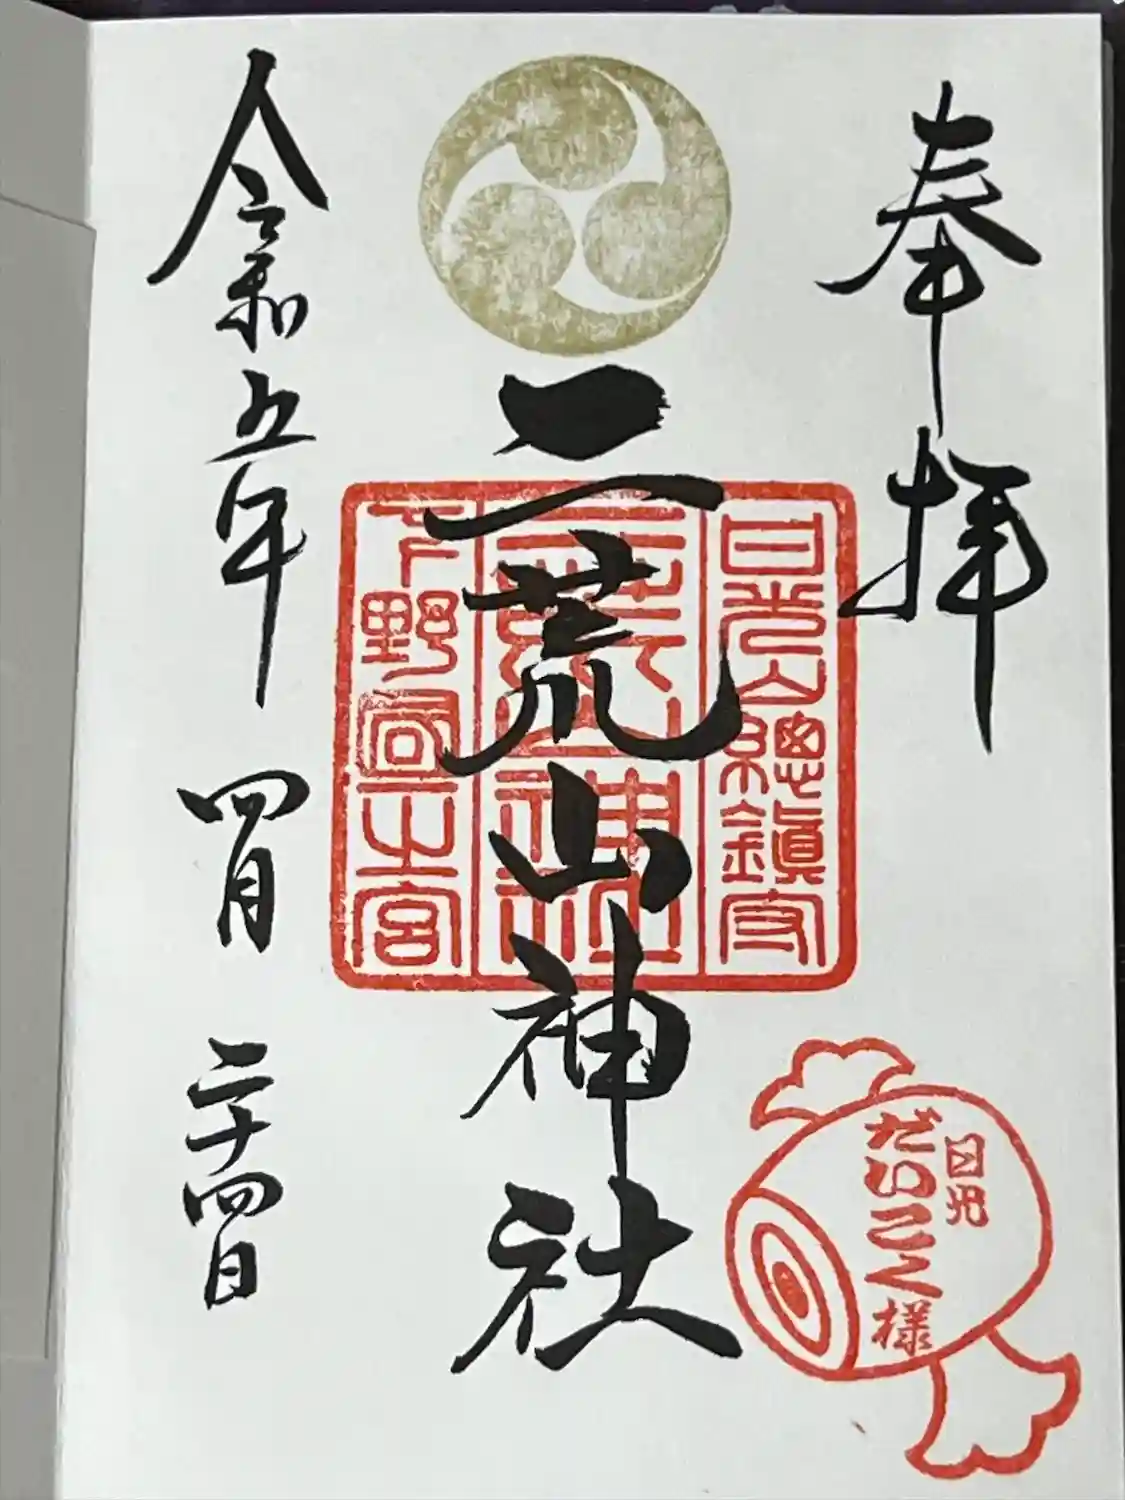 奉拝
日光山總鎮守
二荒山神社
二荒山神社
下野國一之宮
令和五年 四月 二十四日
日光
だいこく様